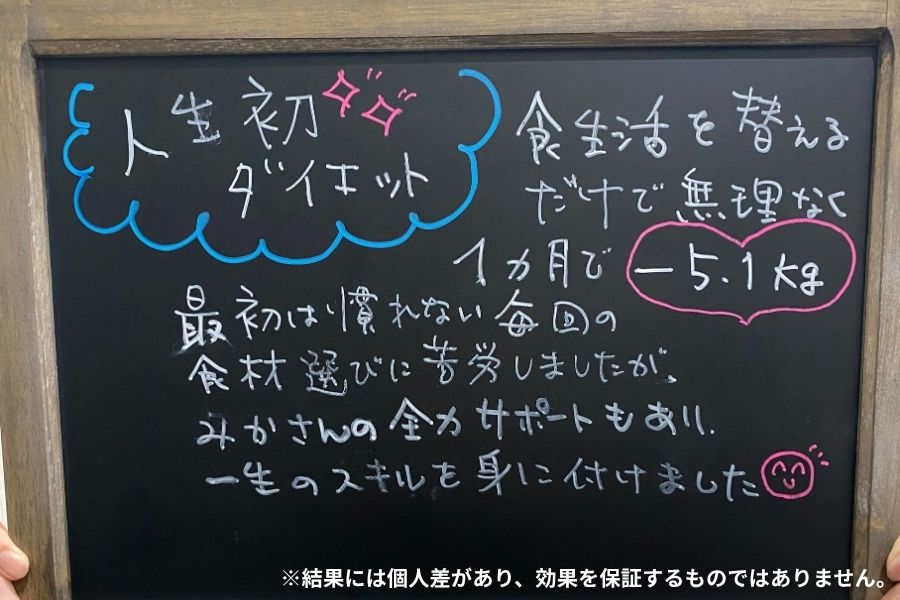 人生初
ダイエット
食生活を替える
だけで無理なく
1カ月で -5.1kg
最初は慣れない毎回の
食材選びに苦労しましたが、
みかさんの全力サポートもあり、
一生のスキルを身に付けました
※結果には個人差があり、効果を保証するものではありません。